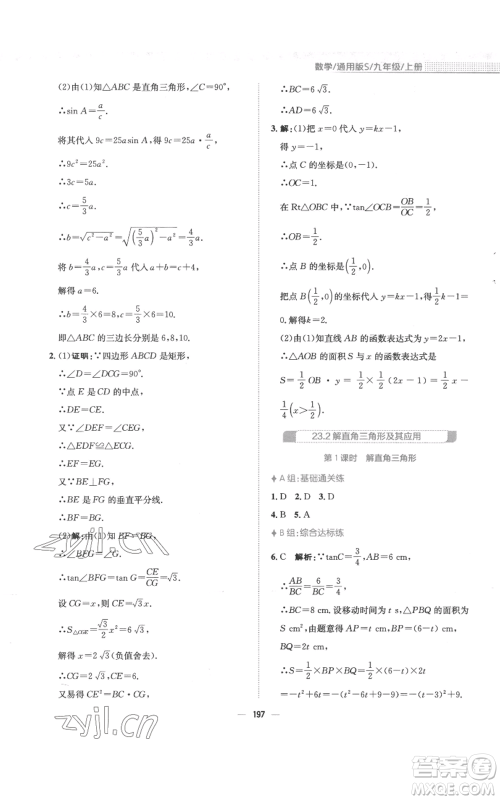 数学/通用版S/九年级/上册
(2)由(1)知△ABC是直角三角形,∠C=90°.
∴sin A=a/c.
将其代入 9c=25a sin A,得 9c=25a·a/c.
∴9c²=25a².
∴3c=5a.
∴c=5/3 a.
∴b=√(c²-a²)=√((5/3 a)²-a²)=4/3 a.
将 b=4/3 a,c=5/3 a 代入
解得 a=6.
∴b=4/3×6=8,c=5/3×6=10.
即△ABC的三边长分别是 6,8,10.
2. (1)证明:∵四边形 ABCD 是矩形,
∴∠D=∠DCG=90°.
∵E 是 CD 的中点,
∴DE=CE.
又∵∠DEF=∠CEG,
∴△DEF≌△CEG.
∴EF=EG.
又∵BE⊥FG,
∴BE 是 FG 的垂直平分线.
∴BF=BG.
(2)解:由(1)知 BF=BG.
∴∠BFG=∠G.
∴tan∠BFG=tan G=CE/CG=√3.
设 CG=x,则 CE=√3x.
解得 x=2√3(负值舍去).
∴CG=2√3.
又易得 CE²=BC·CG.
∴BC=6√3.
3. 解:(1)把 x=0 代入 y=kx-1,
得 y=-1.
∴点 C 的坐标是(0,-1).
∴OC=1.
在 Rt△OBC 中,∵tan∠OCB=OB/OC=1/2,
∴OB=1/2.
∴点 B 的坐标是(1/2,0).
把点 B(1/2,0)代入 y=kx-1,
得 k=2.
(2)由(1)知直线 AB 的函数表达式为 y=2x-1.
∴△AOB 的面积 S 与 x 的函数表达式是
23.2 解直角三角形及其应用
第1课时 解直角三角形
A 组:基础通关练
1. D 2. D 3. D
4. B 5. A
B 组:综合达标练
6. C 解析:∵tan C=3/4,AB=6 cm,
∴AB/BC=6/BC=3/4.
∴BC=8 cm. 设移动时间为 t s,△PBQ 的面积为 S cm². 由题意得 BP=(6-t)cm,
BQ=2t cm.
∴S=1/2×BP×BQ=1/2×(6-t)×2t
=-t²+6t=-(t²-6t+9-9)
197
zyjl.cn
答案圈
MXQE.COM